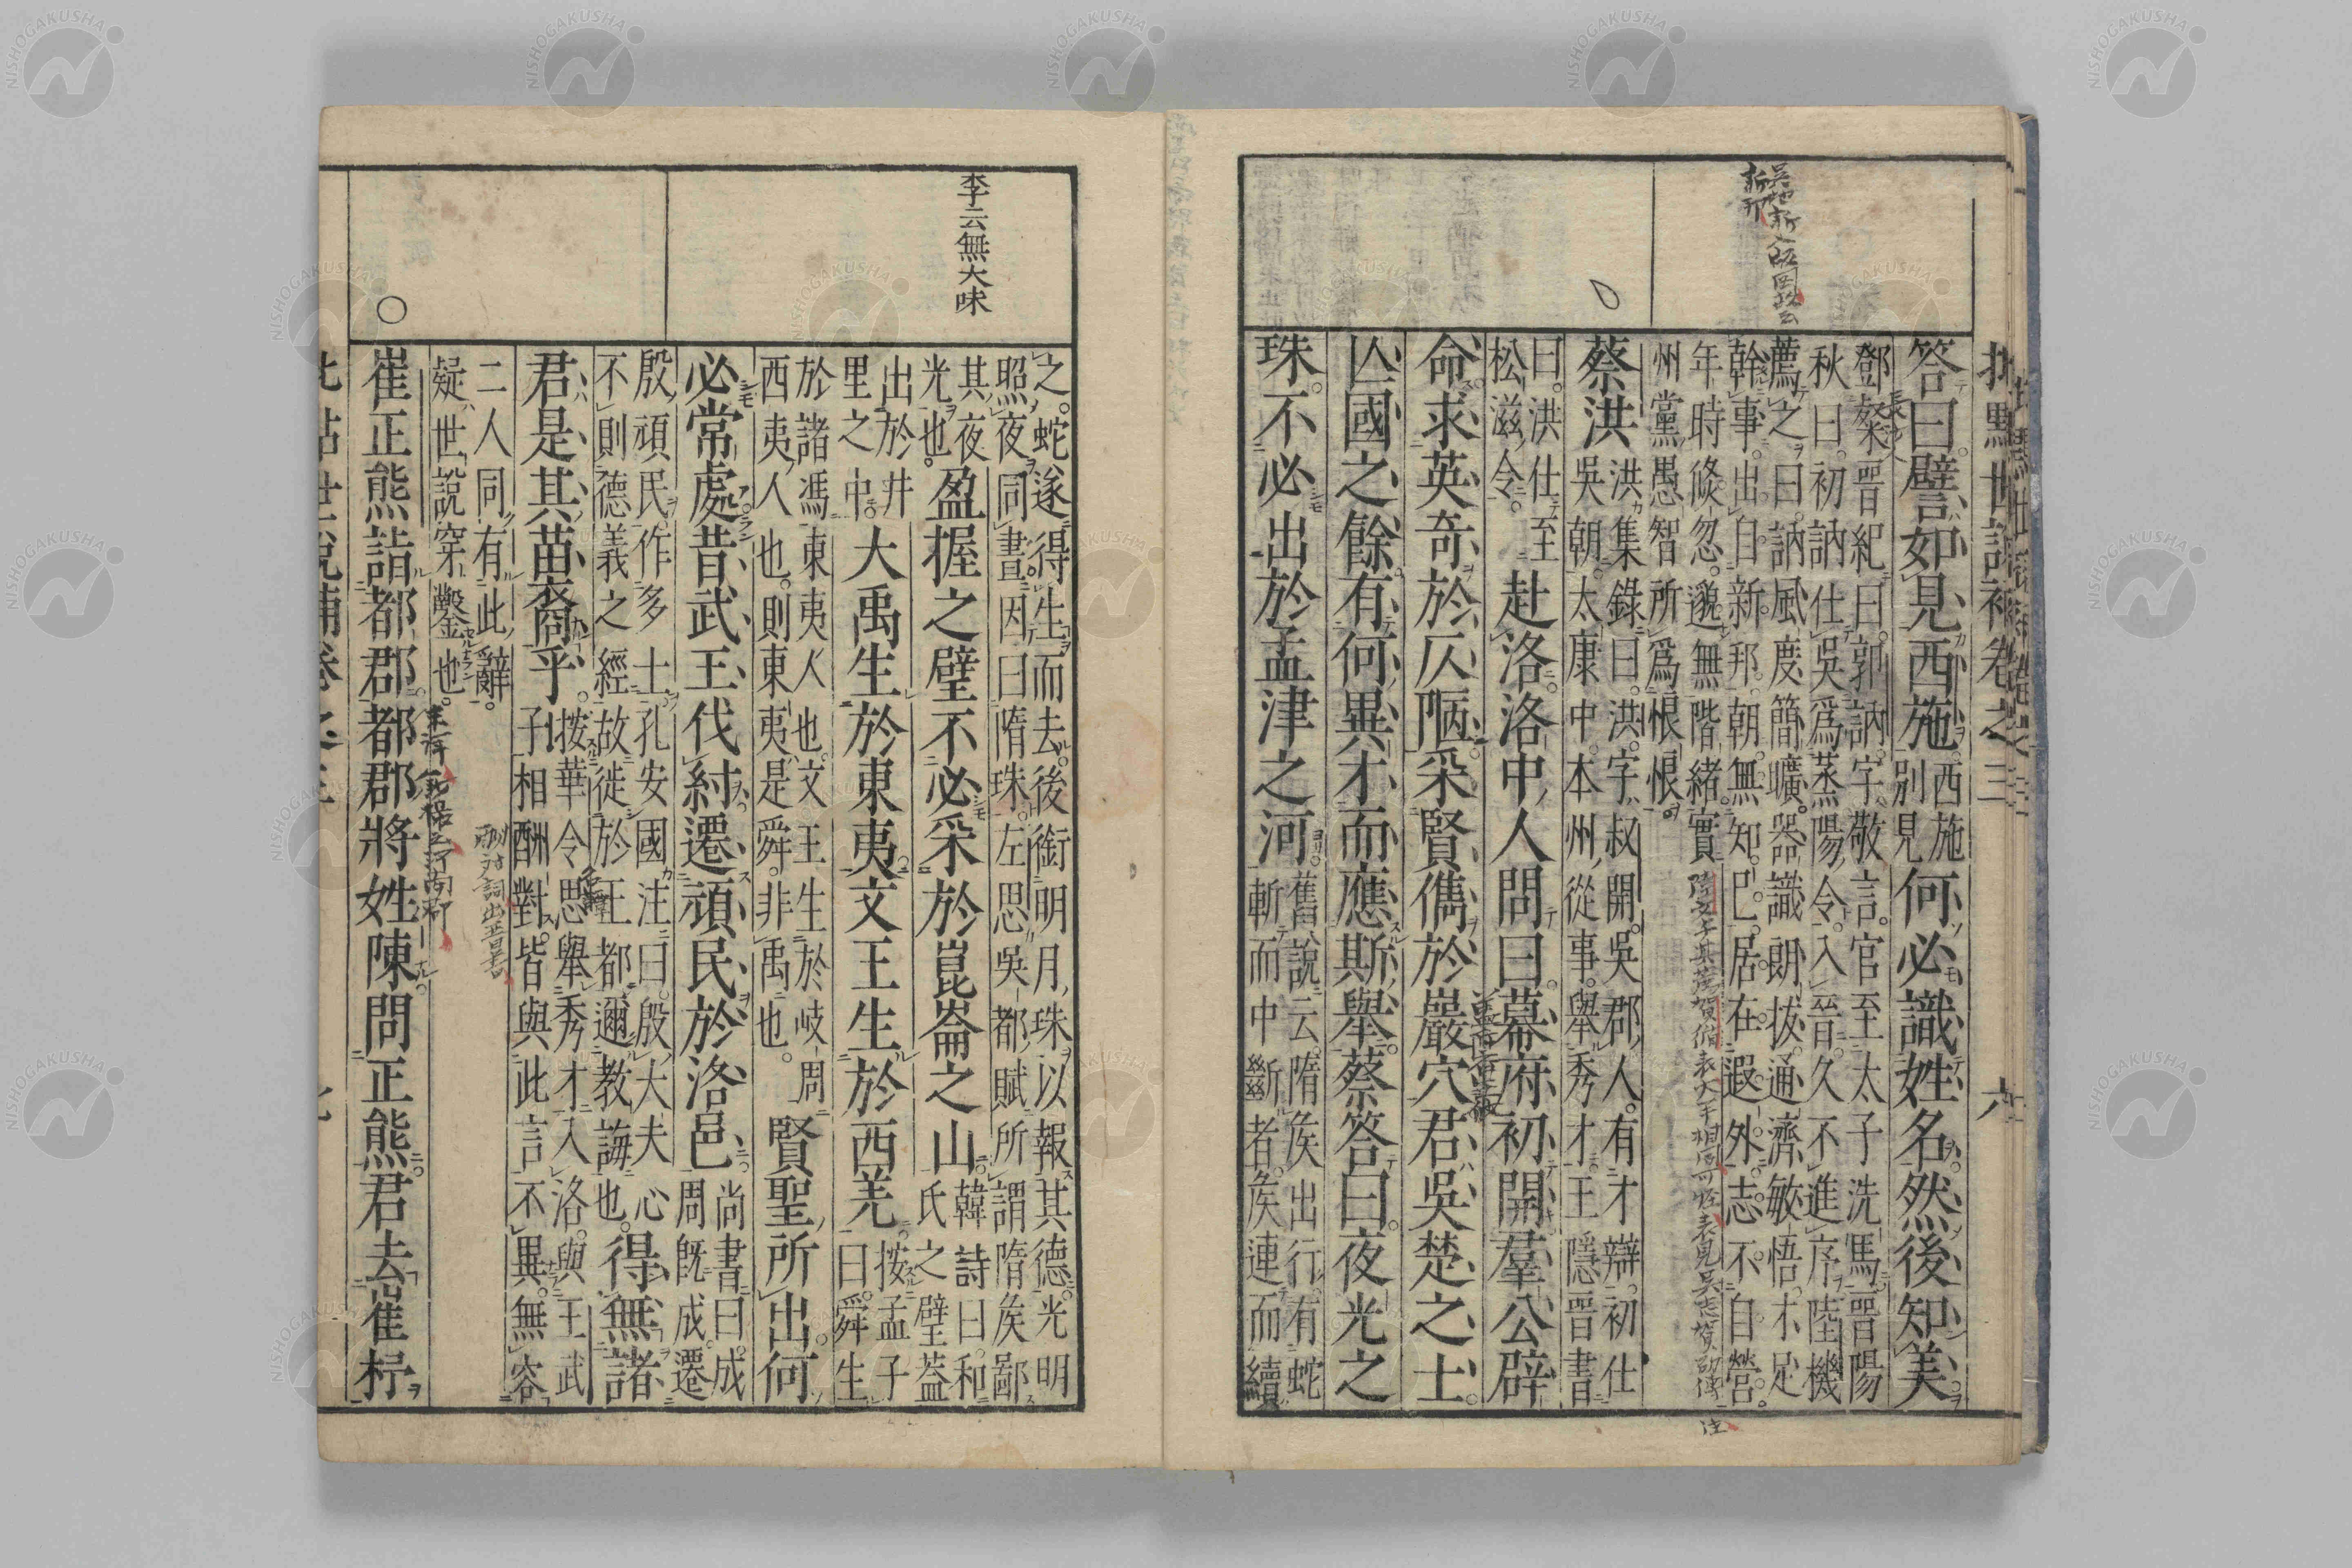 批點世說補卷之三
六
答曰譬如見西施
西施
別見
何必識姓名然後知美
鄧粲晉紀曰郭訥字敬言官至太子洗馬晉陽
秋曰初訥仕吳爲蒸陽令入晉久不進序陸機
薦之曰訥風度簡曠器識朗拔通濟敏悟才足
幹事出自新邦朝無知巳居在遐外志不自營
年時倏忽邈無階緒實
州黨愚智所爲恨恨
蔡洪
洪集錄曰洪字叔開吳郡人有才辯初仕
吳朝太康中本州從事舉秀才王隱晉書
曰洪仕至
松滋令
赴洛洛中人問曰幕府初開羣公辟
命求英奇於仄陋采賢儁於巖穴君吳楚之士
亾國之餘有何異才而應斯舉蔡答曰夜光之
珠不必出於孟津之河
舊說云隋矦出行有蛇
斬而中斷者矦連而續
李云無大味
之蛇遂得生而去後銜明月珠以報其德光明
照夜同晝因曰隋珠左思吳都賦所謂隋矦鄙
其夜
光也
盈握之璧不必采於崑崙之山
韓詩曰和
氏之璧葢
出於井
里之中
大禹生於東夷文王生於西羌
按孟子
曰舜生
於諸馮東夷人也文王生於岐周
西夷人也則東夷是舜非禹也
賢聖所出何
必常處昔武王伐紂遷頑民於洛邑
尚書曰成
周旣成遷
殷頑民作多士孔安國注曰殷大夫心
不則德義之經故徙於王都邇教誨也
得無諸
君是其苗裔乎
按華令思舉秀才入洛與王武
子相酬對皆與此言不異無容
二人同有此辭
疑世說穿鑿也
崔正熊詣都郡都郡將姓陳問正熊君去崔杼